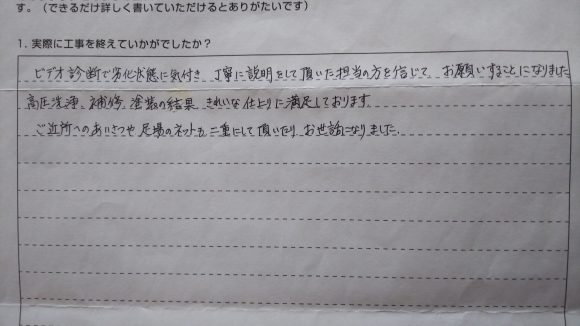 す。（できるだけ詳しく書いていただけるとありがたいです）
1. 実際に工事を終えていかがでしたか？
ビデオ診断で劣化状態に気付き、丁寧に説明をして頂いた担当の方を信じて、お願いすることになりました
高圧洗浄、補修、塗装の結果、きれいな仕上りに満足しております。
ご近所へのあいさつや足場のネットも二重にして頂いたり、お世話になりました。